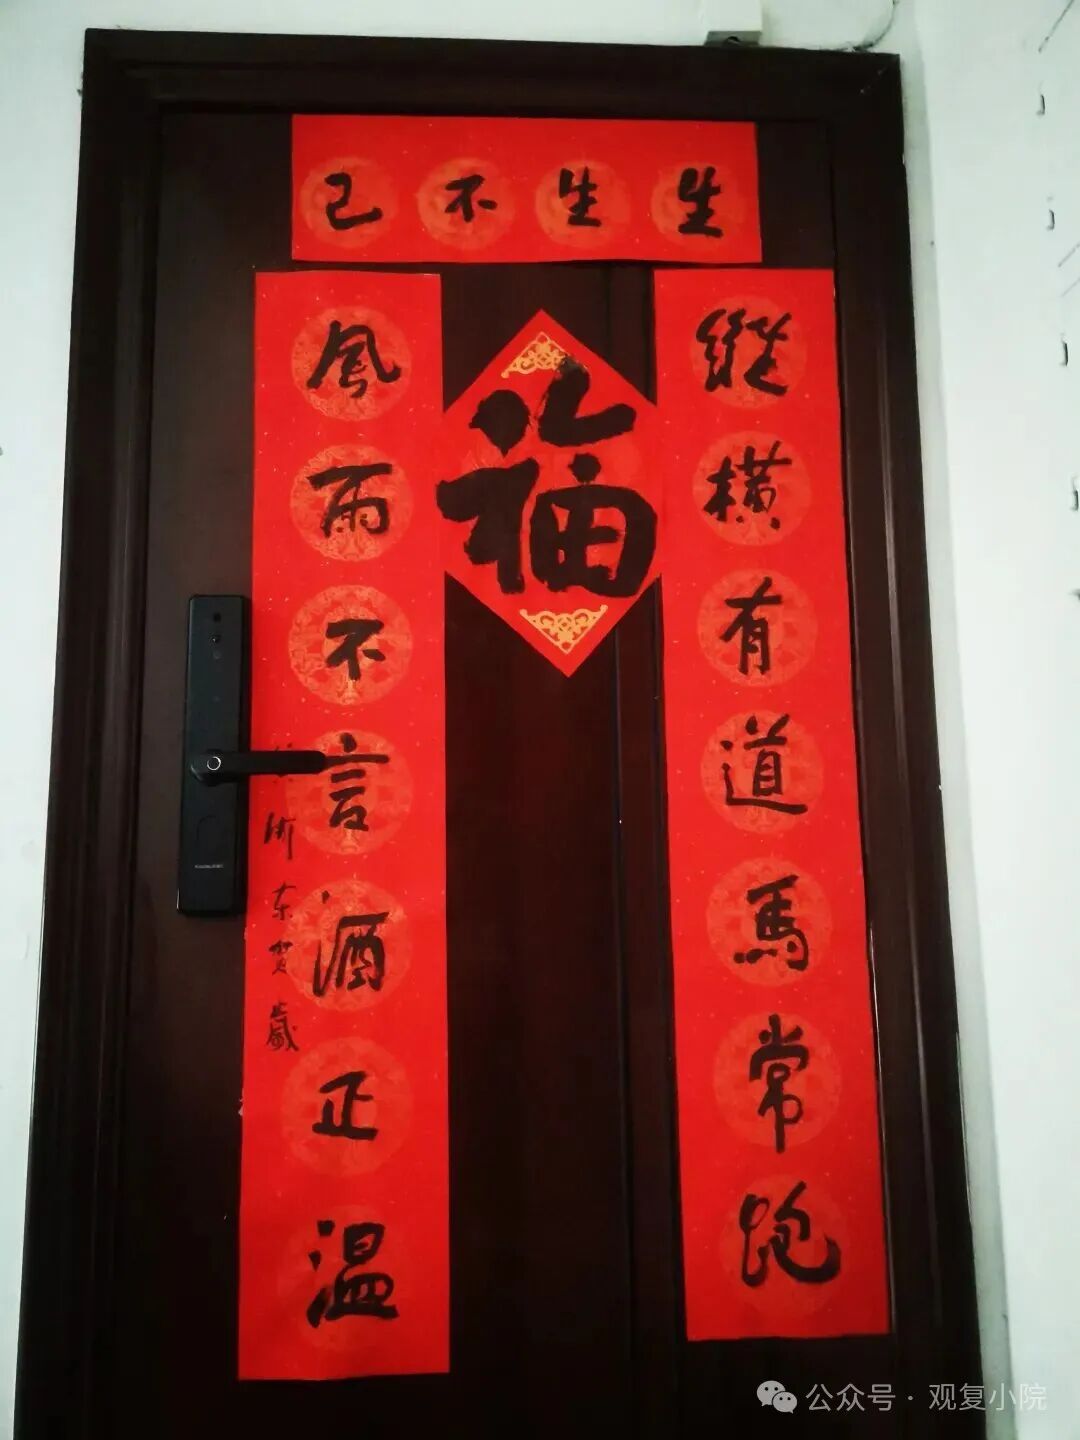 生生不已
縱横有道馬常跑
風雨不言酒正温
福
东贺歲
公众号·观复小院